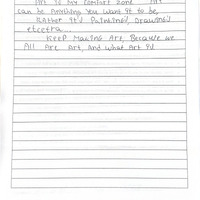 Art is my comfort zone Art
can be Anything you want it to be,
RAther it's Painting, Drawing
etcetra...
Keep Making Art, Because we
All Are Art, And what Art is